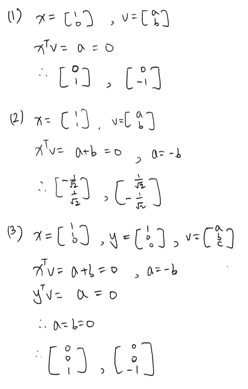 (1) x = [1 0], v = [a b]
xᵀv = a = 0
∴ [0 1], [0 -1]
(2) x = [1 1], v = [a b]
xᵀv = a+b = 0, a = -b
∴ [-1/√2 1/√2], [1/√2 -1/√2]
(3) x = [1 1 0], y = [1 0 0], v = [a b c]
xᵀv = a+b = 0, a = -b
yᵀv = a = 0
∴ a = b = 0
∴ [0 0 1], [0 0 -1]